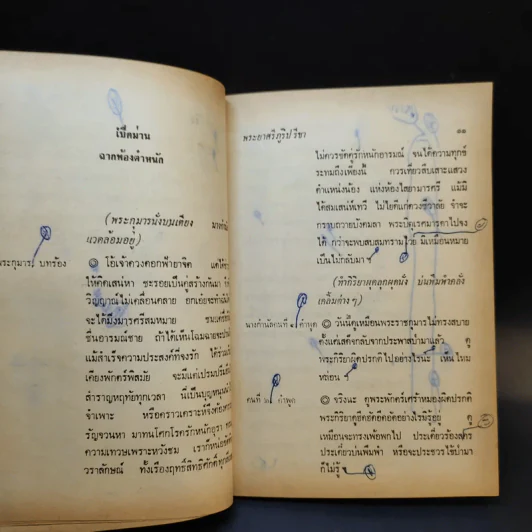 เปิดม่าน
ฉากห้องตำหนัก
(พระกุมารนั่งบนเตียง
แวดล้อมอยู่)
พระกุมาร บทร้อง
◎ โอ้เจ้าดวงดอกฟ้ายาจิต
ให้คิดเสน่หา ชะรอยเป็นคู่สร้างกันมา
วิญญาณ์ไม่เคลื่อนคลาย
จะได้มิ่งมารศรีสมหมาย
ชื่นอารมณ์ชาย ถ้าได้เห็นโฉมฉาย
แม้สำเร็จความประสงค์ที่จงรัก
เคียงพักตร์พิสมัย
สำราญหฤทัยทุกเวลา
จำเพาะ หรือคราวเคราะห์
รัญจวนหา มาทนโศกโรครักหนักอุรา
ความเทวษเพราะหวังชม
วราลักษณ์ ทั้งเรืองฤทธิ์สิทธิศักดิ์
พระยาศรีภูริปรีชา
๑๑
ไม่ควรขัดคู่รักหนักอารมณ์ จนได้ความทุกข์
ระทมถึงเพียงนี้ ควรเที่ยวสืบเสาะแสวง
ตำแหน่งน้อง แห่งห้องไสยามารศรี แม้มิ
ได้สมเสน่ห์เทวี ไม่ไยดีแก่ดวงชีวาลัย จำจะ
กราบถวายบังคมลา พระบิตุเรศมารดาไปจง
ได้ กว่าจะพบสบสมทรามวัย มิเหมือนหมาย
เป็นไม่กลับมา ฯ
(ทำกิริยาผุดลุกผุดนั่ง บ่นพึมพำคลั่ง
เคลิ้มต่าง ๆ)
นางกำนัลคนที่ ๑ คำพูด
◎ วันนี้ดูเหมือนพระราชกุมารไม่ทรงสบาย
ตั้งแต่เสด็จกลับจากประพาสป่ามาแล้ว ดู
พระกิริยาผิดปรกติไปอย่างไรน่ะ เห็นไหม
หล่อน ฯ
คนที่ ๒ คำพูด
◎ จริงนะ ดูพระพักตร์เศร้าหมองผิดปรกติ
พระกิริยาดูอึดอัดอึดอัดอย่างไรมิรู้อยู่ ดู
เหมือนจะทรงเพ้อพกไป ประเดี๋ยวร้องลคร
ประเดี๋ยวบ่นพึมพำ หรือจะประชวรไข้ป่ามา
ก็ไม่รู้